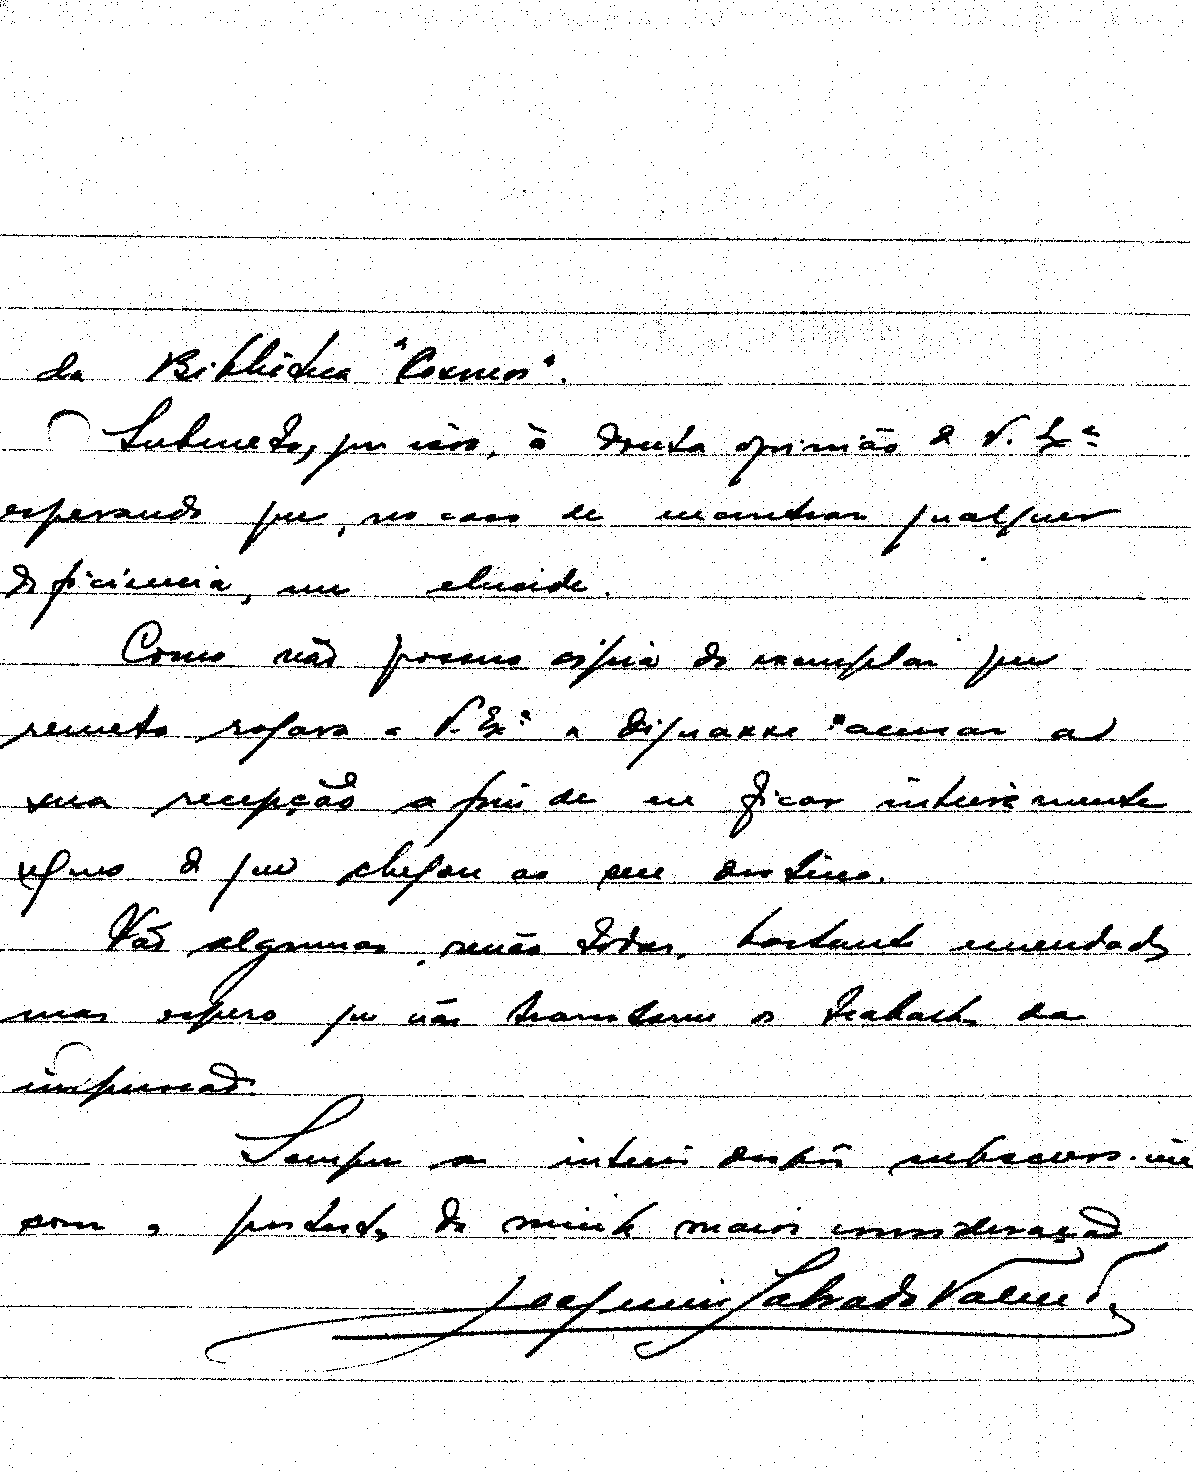 da Biblióteca "Cosmos".
Submeto, por isso, à douta opinião de V. Exª
esperando que, no caso de encontrar qualquer
deficiencia, me elucide.
Como não possuo cópia do exemplar que
remeto rogava a V. Exª a dignar-se acusar a
sua recepção a fim de eu ficar inteiramente
seguro de que chegou ao seu destino.
Vão algumas, senão todas, bastante emendadas
mas espero que não transtorne o trabalho da
impressão.
Sempre ao inteiro dispôr subscrevo-me
com o protesto da minha maior consideração
Joaquim Salvado